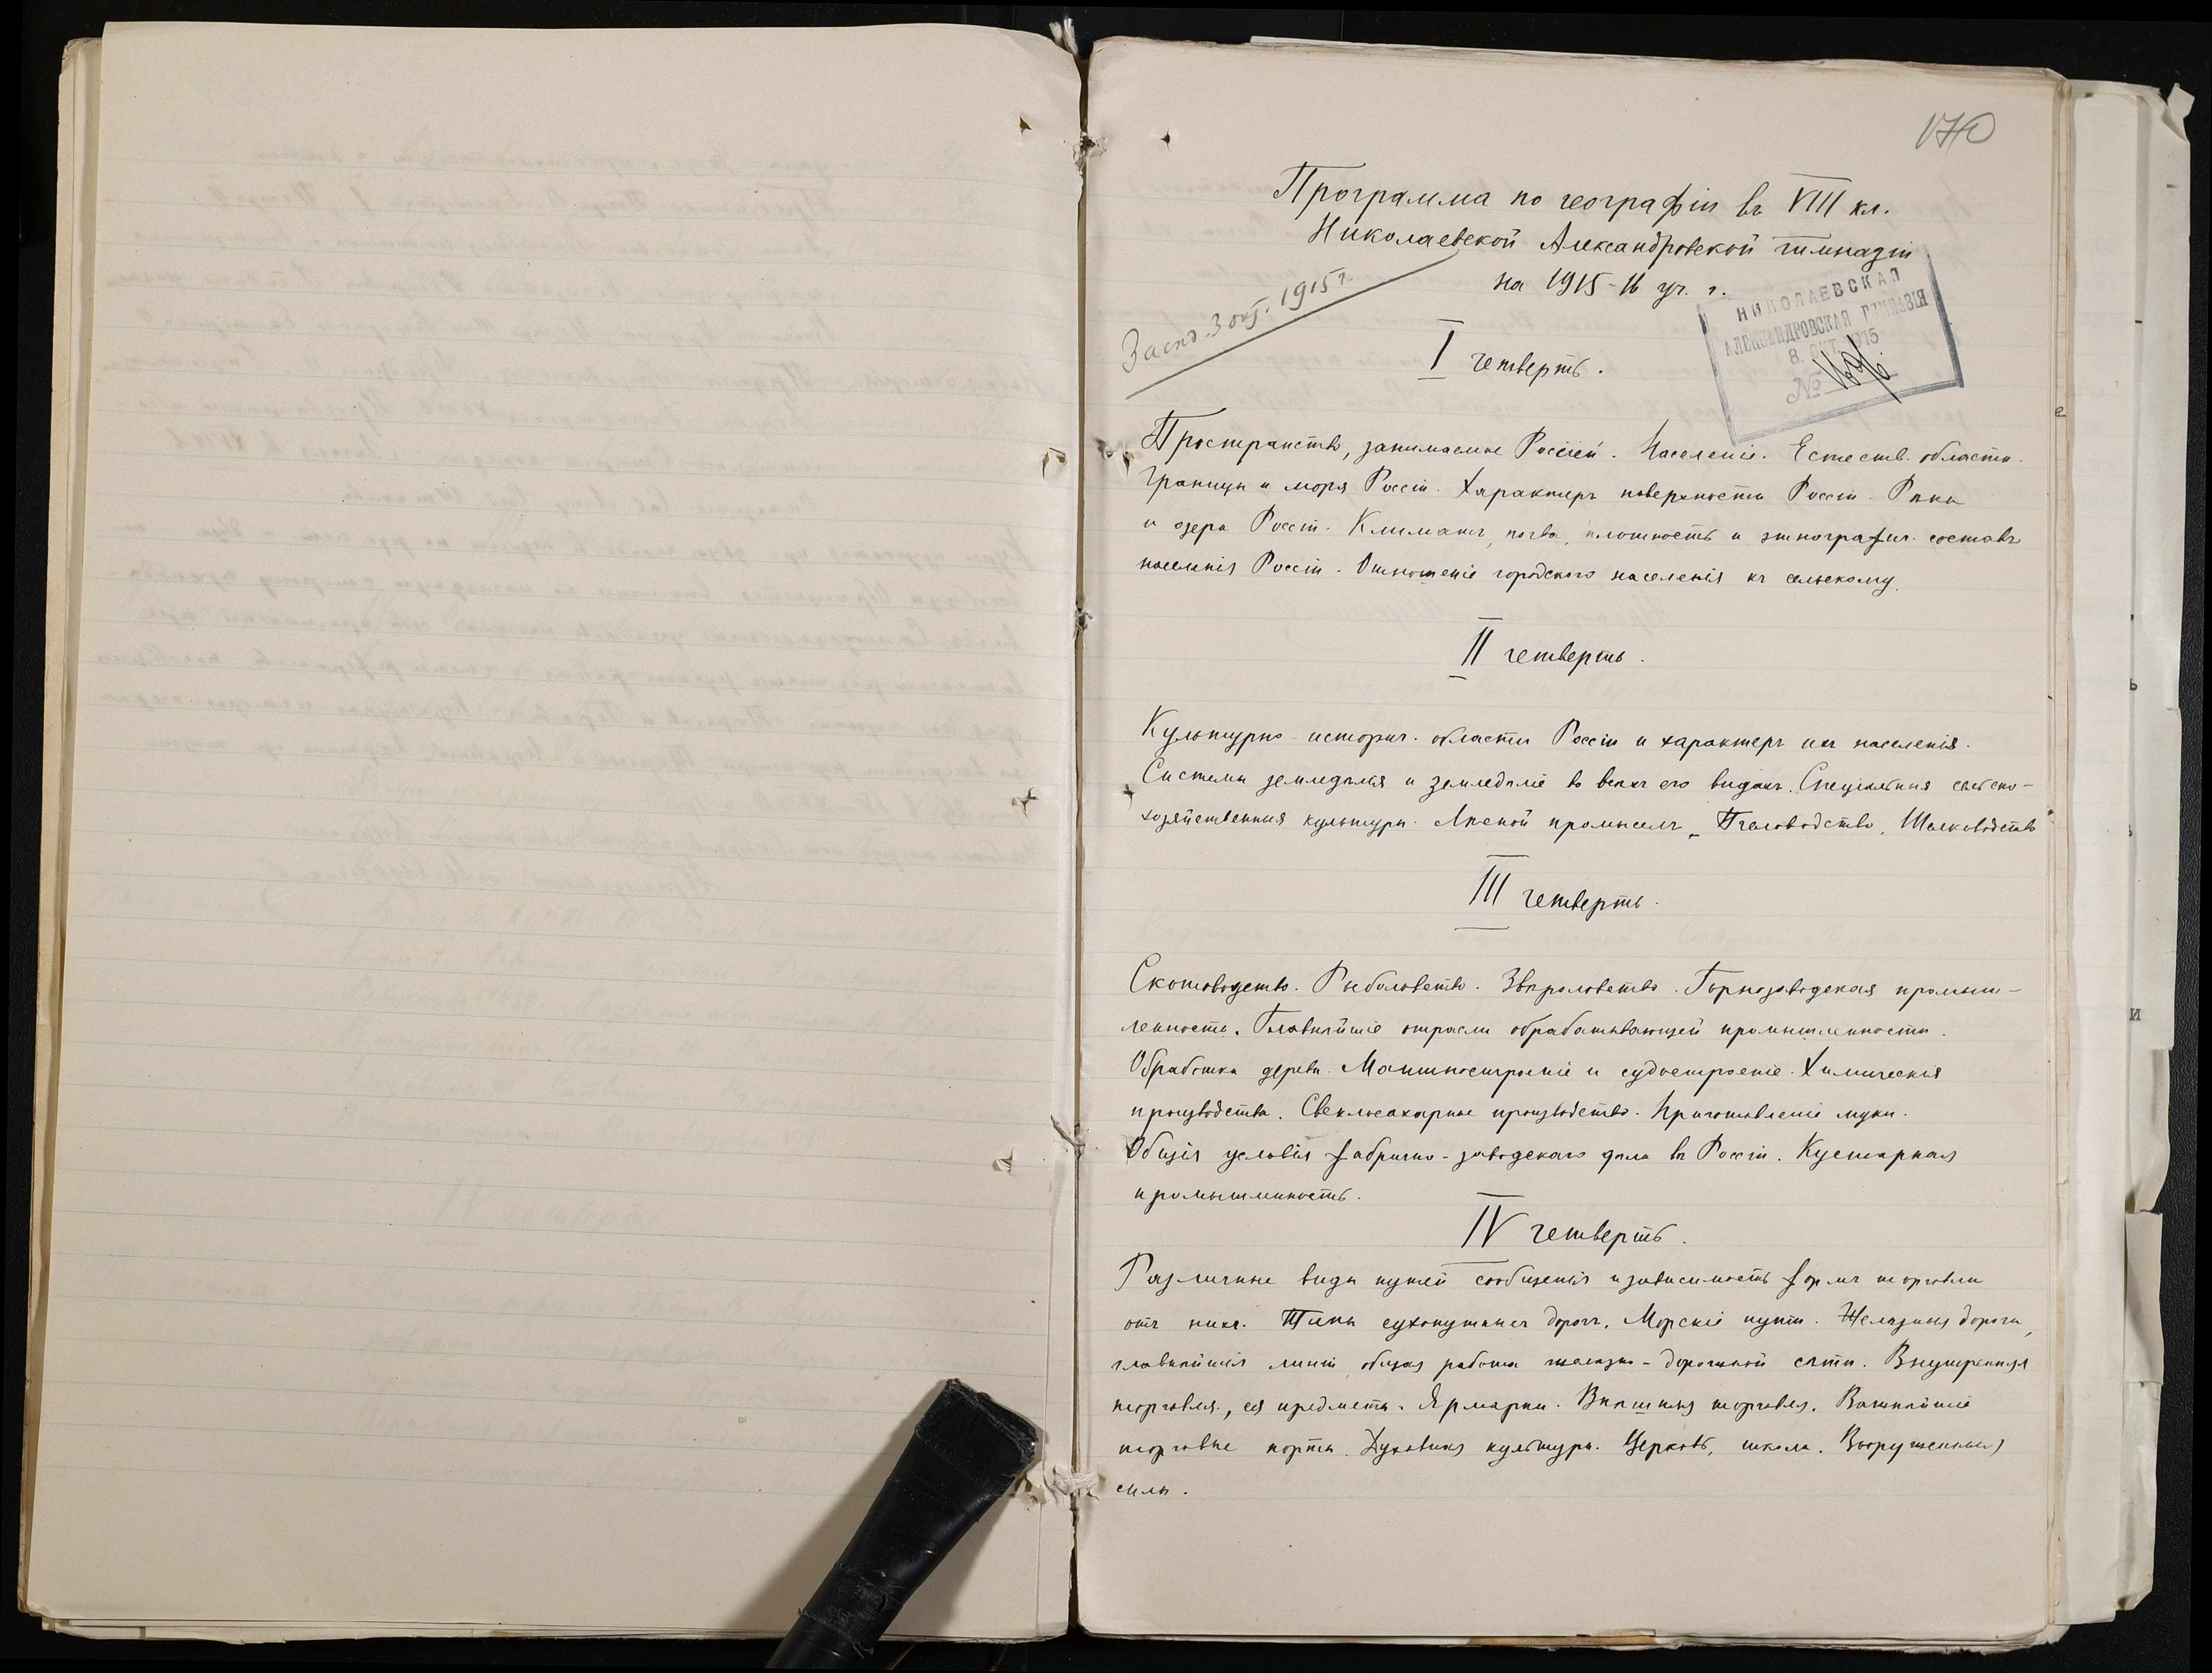 170
Программа по географіи въ VIII кл.
Николаевской Александровской гимназіи
на 1915-16 уч. г.
Засѣд. 3 окт. 1915 г.
НИКОЛАЕВСКАЯ
АЛЕКСАНДРОВСКАЯ ГИМНАЗІЯ
8. ОКТ. 1915
№
I четверть.
Пространство, занимаемое Россіей. Населеніе. Естеств. области.
Границы и моря Россіи. Характеръ поверхности Россіи. Рѣки
и озера Россіи. Климатъ, почва, плотность и этнографич. составъ
населенія Россіи. Отношеніе городского населенія къ сельскому.
II четверть.
Культурно-историч. области Россіи и характеръ ихъ населенія.
Системы земледѣлія и земледѣліе во всѣхъ его видахъ. Спеціальныя сельско-
хозяйственныя культуры. Лѣсной промыселъ. Пчеловодство, Шелководство
III четверть.
Скотоводство. Рыболовство. Звѣроловство. Горнозаводская промыш-
ленность. Главнѣйшіе отрасли обрабатывающей промышленности.
Обработка дерева. Машиностроеніе и судостроеніе. Химическія
производства. Свеклосахарное производство. Приготовленіе муки.
Общія условія фабрично-заводскаго дѣла въ Россіи. Кустарная
промышленность.
IV четверть.
Различные виды путей сообщенія и зависимость формъ торговли
отъ нихъ. Типы сухопутныхъ дорогъ. Морскіе пути. Желѣзныя дороги,
главнѣйшія линіи, общая работа желѣзно-дорожной сѣти. Внутренняя
торговля, ея предметы. Ярмарки. Внѣшняя торговля. Важнѣйшіе
торговые порты. Духовная культура. Церковь, школа. Вооруженныя
силы.